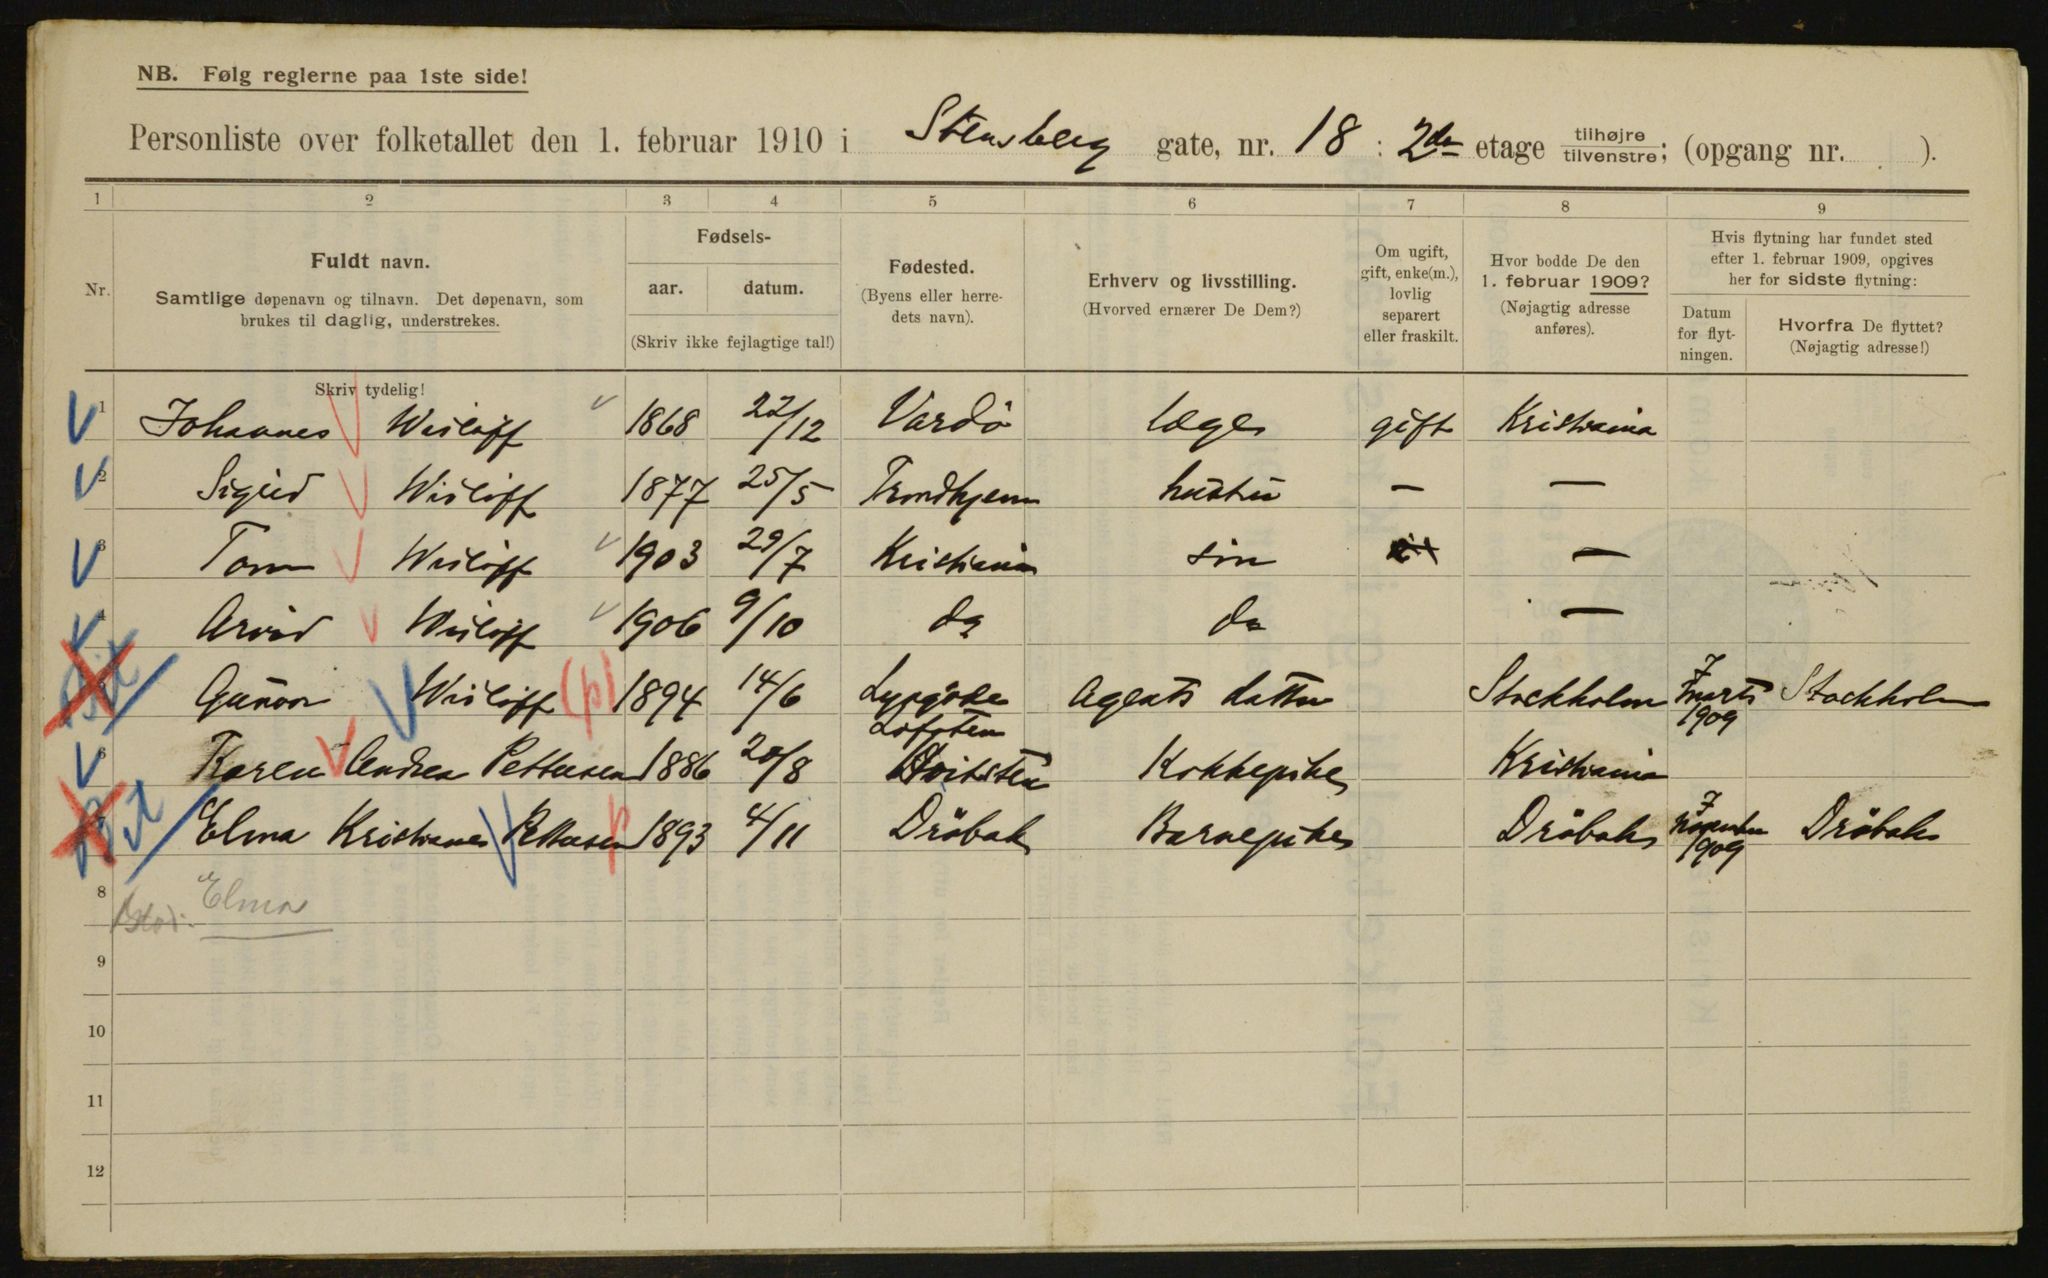 NB. Følg reglerne paa 1ste side!
Personliste over folketallet den 1. februar 1910 i Stensberg gate, nr. 18 : 2den etage tilhøjre/tilvenstre; (opgang nr. ).
1 2 3 4 5 6 7 8 9
Nr.
Fuldt navn.
Samtlige døpenavn og tilnavn. Det døpenavn, som
brukes til daglig, understrekes.
Fødsels-
aar. datum.
(Skriv ikke fejlagtige tal!)
Fødested.
(Byens eller herre-
dets navn).
Erhverv og livsstilling.
(Hvorved ernærer De Dem?)
Om ugift,
gift, enke(m.),
lovlig
separert
eller fraskilt.
Hvor bodde De den
1. februar 1909?
(Nøjagtig adresse
anføres).
Hvis flytning har fundet sted
efter 1. februar 1909, opgives
her for sidste flytning:
Datum
for flyt-
ningen.
Hvorfra De flyttet?
(Nøjagtig adresse!)
Skriv tydelig!
1 Johannes Wisløff 1868 22/12 Vardö læge gift Kristiania
2 Sigrid Wisløff 1877 25/5 Trondhjem hustru — —
3 Tom Wisløff 1903 29/7 Kristiania sön —
Arvid Wisløff 1906 9/10 do do —
Gunvor Wisløff (p) 1894 14/6 Lofoten Agents datter Stockholm 7 marts 1909 Stockholm
6 Karen Andrea Pettersen 1886 20/8 Hvitsten Kokkepike Kristiania
Elma Kristiane Pettersen p 1893 4/11 Dröbak Barnepike Dröbak 7 November 1909 Dröbak
8 Elma
9
10
11
12